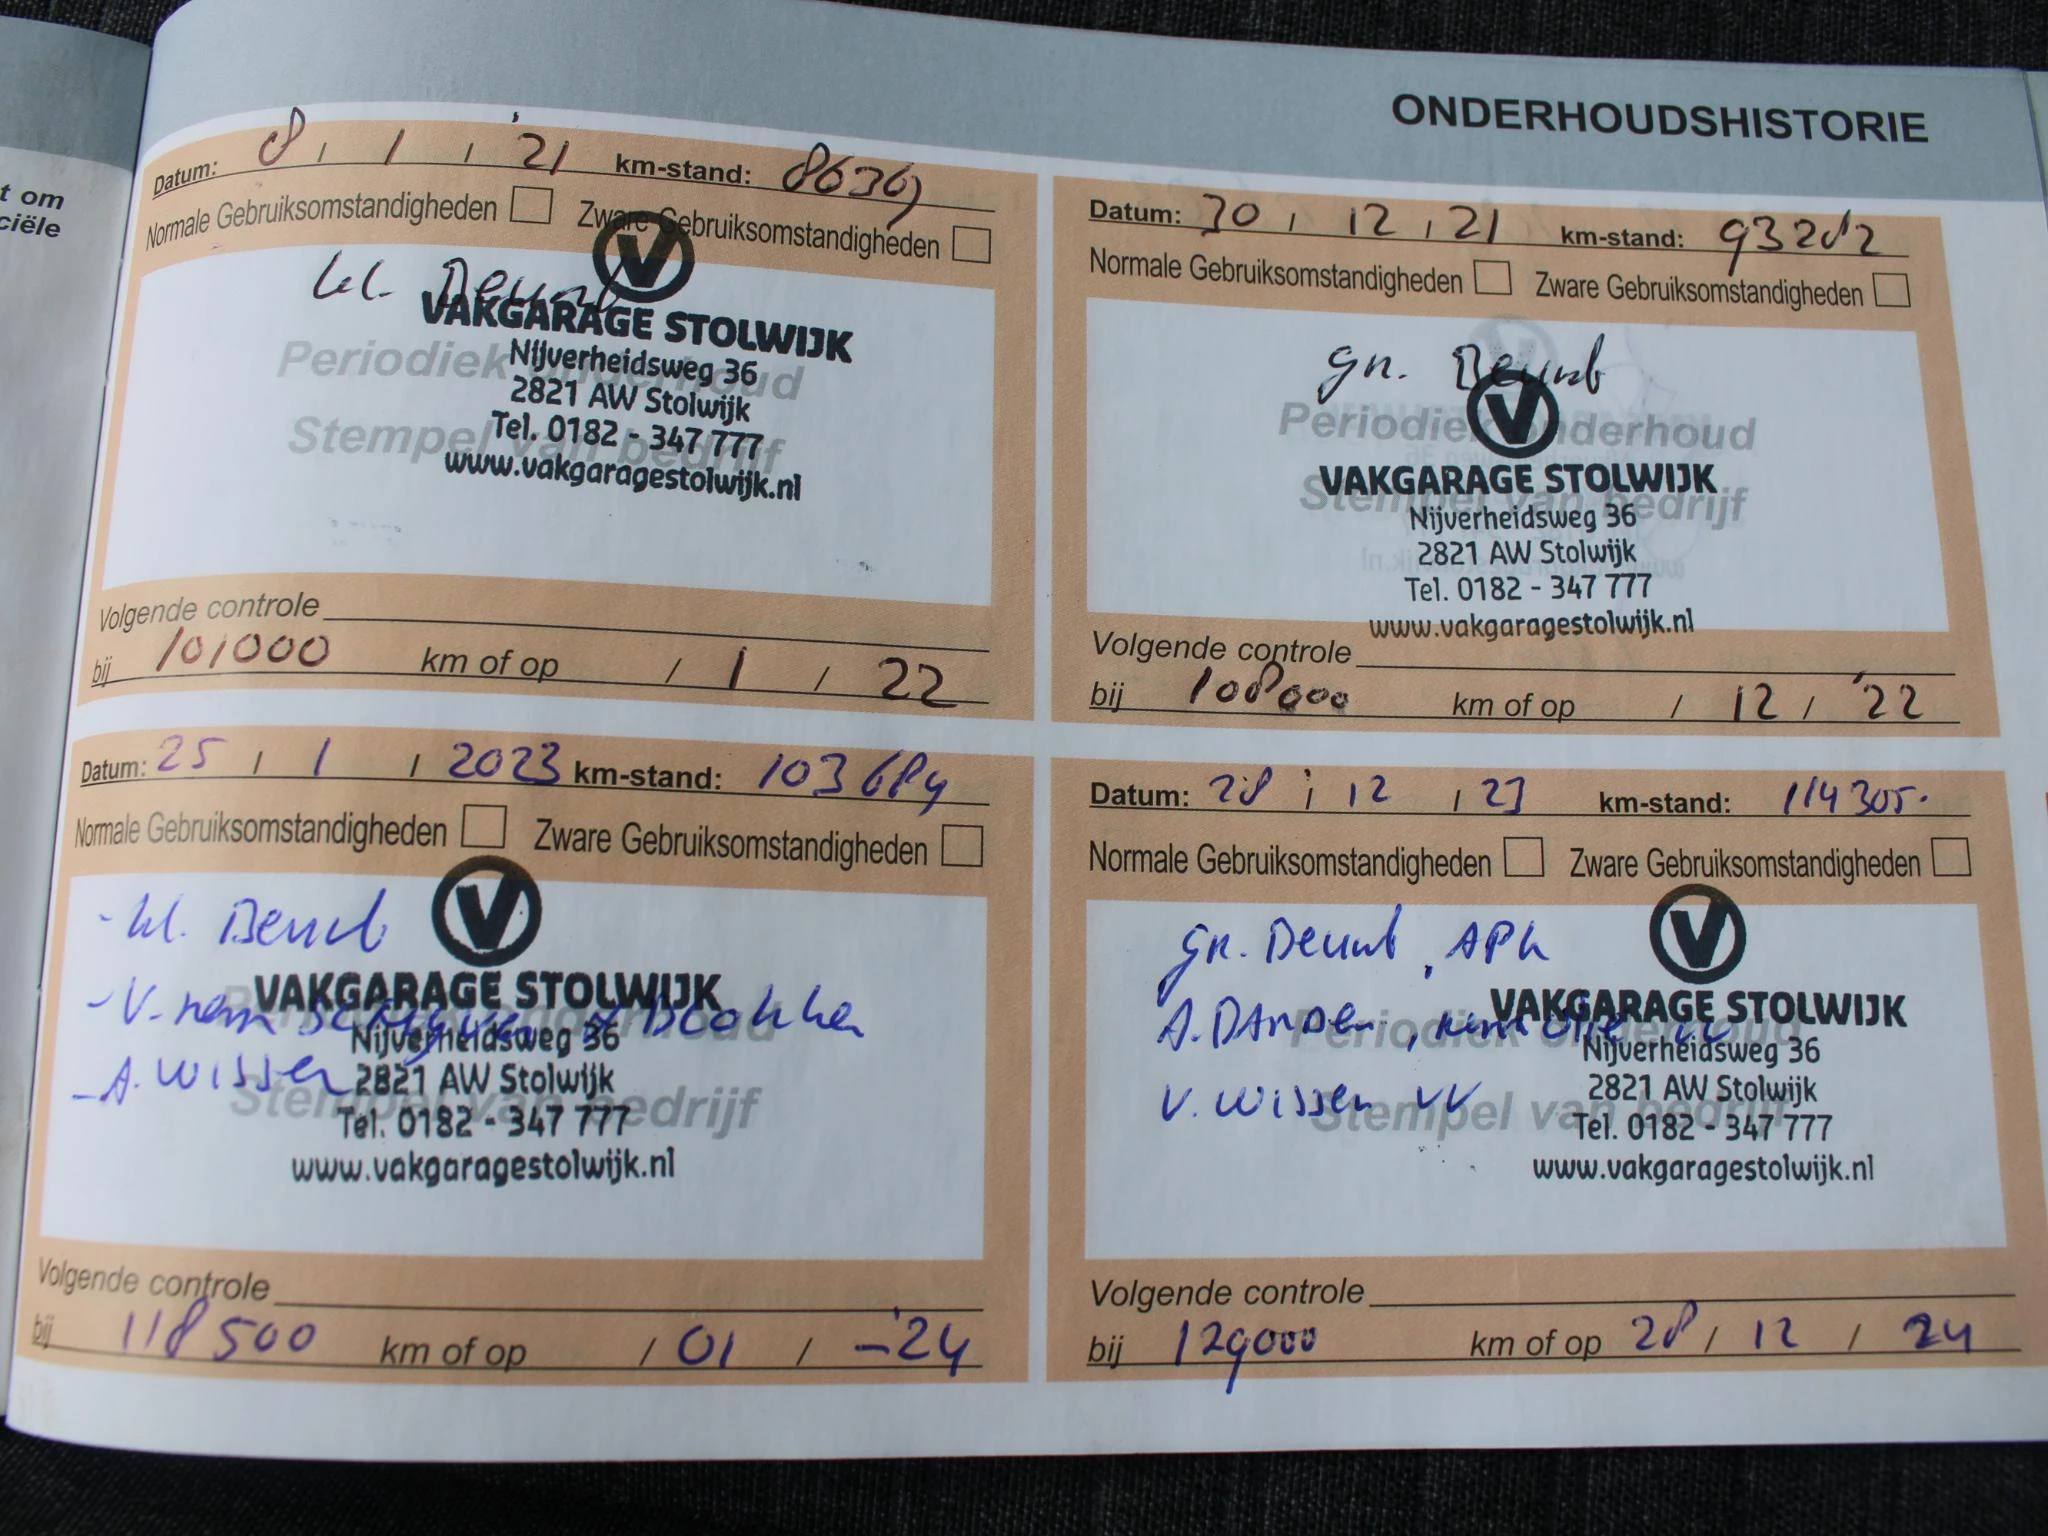 t om
ciële
ONDERHOUDSHISTORIE
Datum: 8 / 1 / '21 km-stand: 86369
Normale Gebruiksomstandigheden Zware Gebruiksomstandigheden
kl. Beurt
VAKGARAGE STOLWIJK
Periodiek onderhoud
Nijverheidsweg 36
2821 AW Stolwijk
Stempel van bedrijf
Tel. 0182 - 347 777
www.vakgaragestolwijk.nl
Volgende controle
bij 101000 km of op / 1 / 22
Datum: 30 / 12 / 21 km-stand: 93282
Normale Gebruiksomstandigheden Zware Gebruiksomstandigheden
gr. Beurt
Periodiek onderhoud
VAKGARAGE STOLWIJK
Stempel van bedrijf
Nijverheidsweg 36
2821 AW Stolwijk
Tel. 0182 - 347 777
www.vakgaragestolwijk.nl
Volgende controle
bij 108000 km of op / 12 / '22
Datum: 25 / 1 / 2023 km-stand: 103684
Normale Gebruiksomstandigheden Zware Gebruiksomstandigheden
- kl. Beurt
VAKGARAGE STOLWIJK
- V. rem schijven + blokken
Periodiek onderhoud
Nijverheidsweg 36
- A. wissen
2821 AW Stolwijk
Stempel van bedrijf
Tel. 0182 - 347 777
www.vakgaragestolwijk.nl
Volgende controle
bij 118500 km of op / 01 / -'24
Datum: 28 / 12 / 23 km-stand: 114305.
Normale Gebruiksomstandigheden Zware Gebruiksomstandigheden
gr. Beurt, APK
VAKGARAGE STOLWIJK
A. Banden, remolie
Periodiek onderhoud
Nijverheidsweg 36
2821 AW Stolwijk
V. wissen VV
Stempel van bedrijf
Tel. 0182 - 347 777
www.vakgaragestolwijk.nl
Volgende controle
bij 129000 km of op 28 / 12 / 24